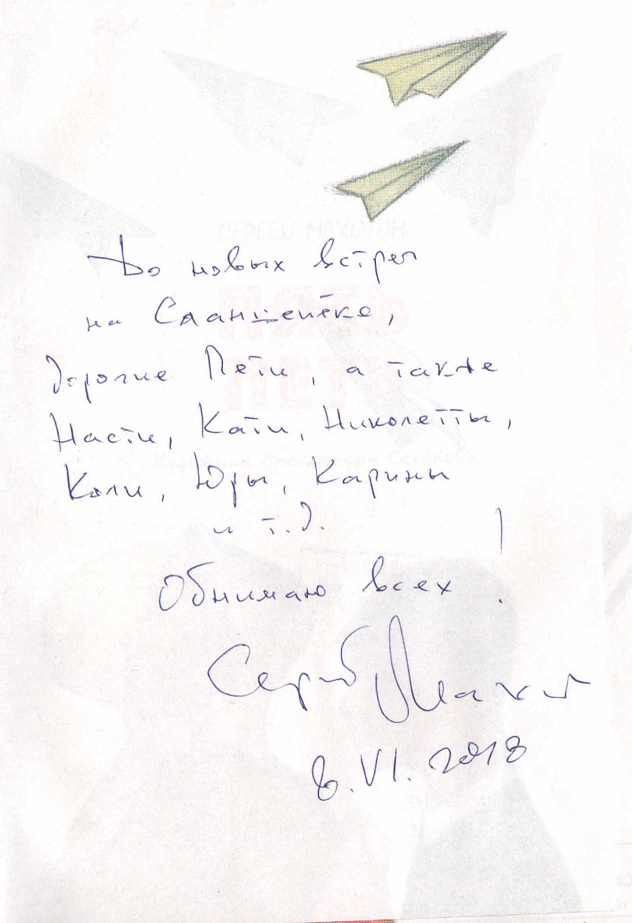 До новых встреч
на Сланцепёке,
дорогие Пети, а также
Насти, Кати, Николетты,
Коли, Юры, Карины
и т.д.
Обнимаю всех!
Сергей
8.VI.2018